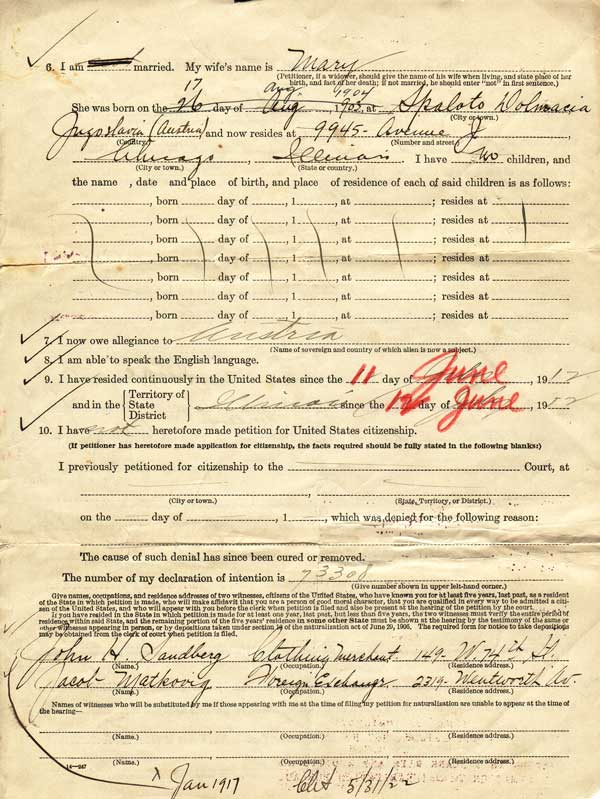 6. I am married. My wife's name is Mary
(Petitioner, if a widower, should give the name of his wife when living, and state place of her birth, and fact of her death; if not married, he should enter "not" in first sentence.)
17 Aug 1904
She was born on the 26 day of Aug, 1903, at Spaloto Dolmacia
(City or town.)
Jugoslavia (Austria) and now resides at 9945- Avenue J,
(Country.) (Number and street.)
Chicago, Illinois. I have no children, and
(City or town.) (State or country.)
the name, date and place of birth, and place of residence of each of said children is as follows:
, born day of , 1 , at ; resides at
, born day of , 1 , at ; resides at
, born day of , 1 , at ; resides at
, born day of , 1 , at ; resides at
, born day of , 1 , at ; resides at
, born day of , 1 , at ; resides at
, born day of , 1 , at ; resides at
7. I now owe allegiance to Austria
(Name of sovereign and country of which alien is now a subject.)
8. I am able to speak the English language.
9. I have resided continuously in the United States since the 11 day of June, 1912
and in the Territory of State District Illinois since the 12 day of June, 19
10. I have not heretofore made petition for United States citizenship.
(If petitioner has heretofore made application for citizenship, the facts required should be fully stated in the following blanks:)
I previously petitioned for citizenship to the Court, at
(City or town.) (State, Territory, or District.)
on the day of , 1 , which was denied for the following reason:
The cause of such denial has since been cured or removed.
The number of my declaration of intention is 73308
(Give number shown in upper left-hand corner.)
Give names, occupations, and residence addresses of two witnesses, citizens of the United States, who have known you for at least five years, last past, as a resident
of the State in which petition is made, who will make affidavit that you are a person of good moral character, that you are qualified in every way to be admitted a citi-
zen of the United States, and who will appear with you before the clerk when petition is filed and also be present at the hearing of the petition by the court.
If you have resided in the State in which petition is made for at least one year, last past, but less than five years, the two witnesses must verify the entire period of
residence within said State, and the remaining portion of the five years' residence in some other State must be shown at the hearing by the testimony of the same or
other witnesses appearing in person, or by depositions taken under section of the naturalization act of June 29, 1906. The required form for notice to take depositions
may be obtained from the clerk of court when petition is filed.
John H. Sandberg Clothing Merchant 149- W. 74th St.
(Name.) (Occupation.) (Residence address.)
Jacob Matkovig Foreign Exchange 2319- Wentworth Av.
(Name.) (Occupation.) (Residence address.)
Names of witnesses who will be substituted by me if those appearing with me at the time of filing my petition for naturalization are unable to appear at the time of
the hearing—
(Name.) (Occupation.) (Residence address.)
(Name.) (Occupation.) (Residence address.)
14—247
x Jan 1917 5/31/22